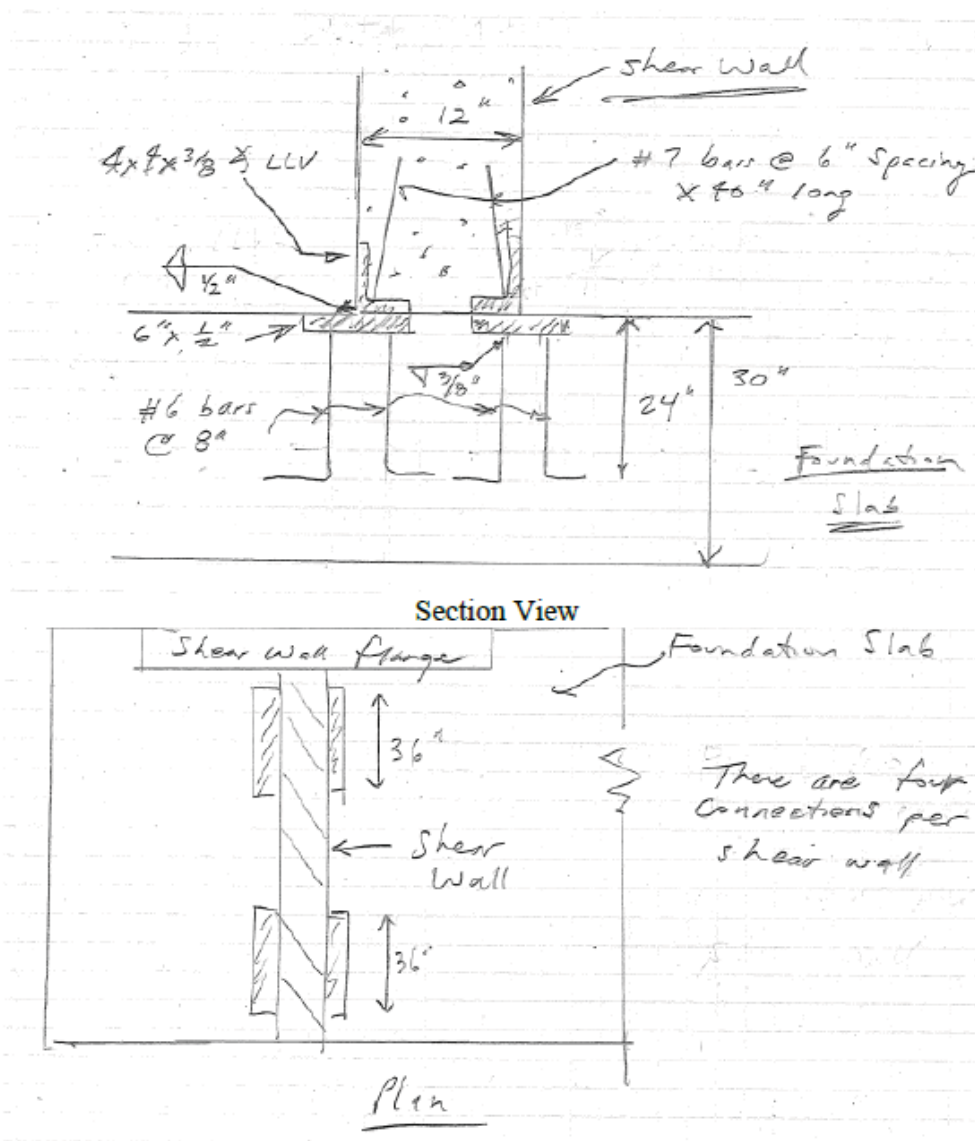 shear wall
12"
4x4x3/8 ∠ LLV
#7 bars @ 6" spacing
x 40" long
1/2"
6" x 1/2"
3/8"
#6 bars
@ 8"
24"
30"
Foundation
Slab
Section View
Shear wall flange
Foundation Slab
36"
There are four
connections per
shear wall
Shear
Wall
36"
Plan